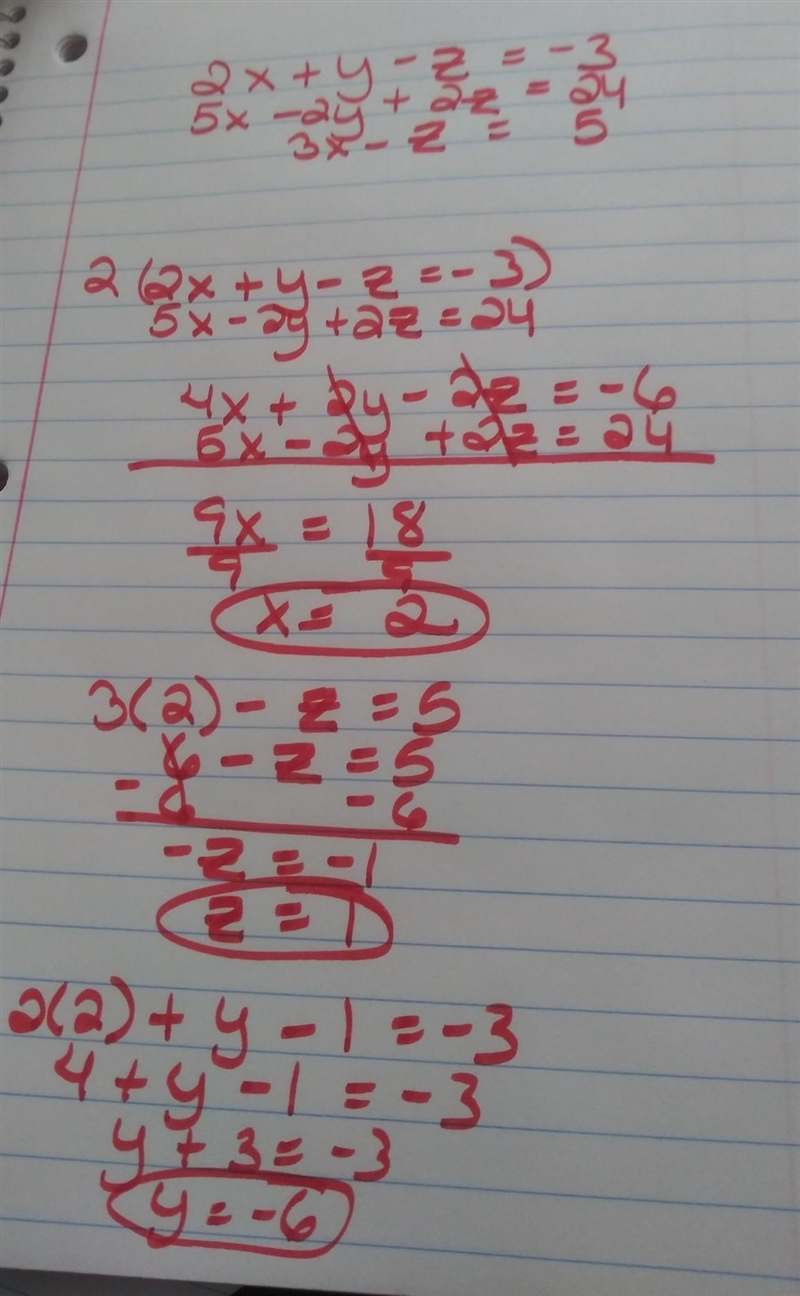 2x + y - z = -3
5x - 2y + 2z = 24
3x - z = 5
2(2x + y - z = -3)
5x - 2y + 2z = 24
4x + 2y - 2z = -6
5x - 2y + 2z = 24
9x = 18
9 9
x = 2
3(2) - z = 5
6 - z = 5
-6 -6
-z = -1
z = 1
2(2) + y - 1 = -3
4 + y - 1 = -3
y + 3 = -3
y = -6